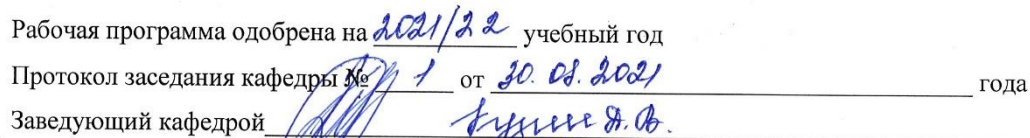 Рабочая программа одобрена на 2021/22 учебный год
Протокол заседания кафедры № 1 от 30.08.2021 года
Заведующий кафедрой